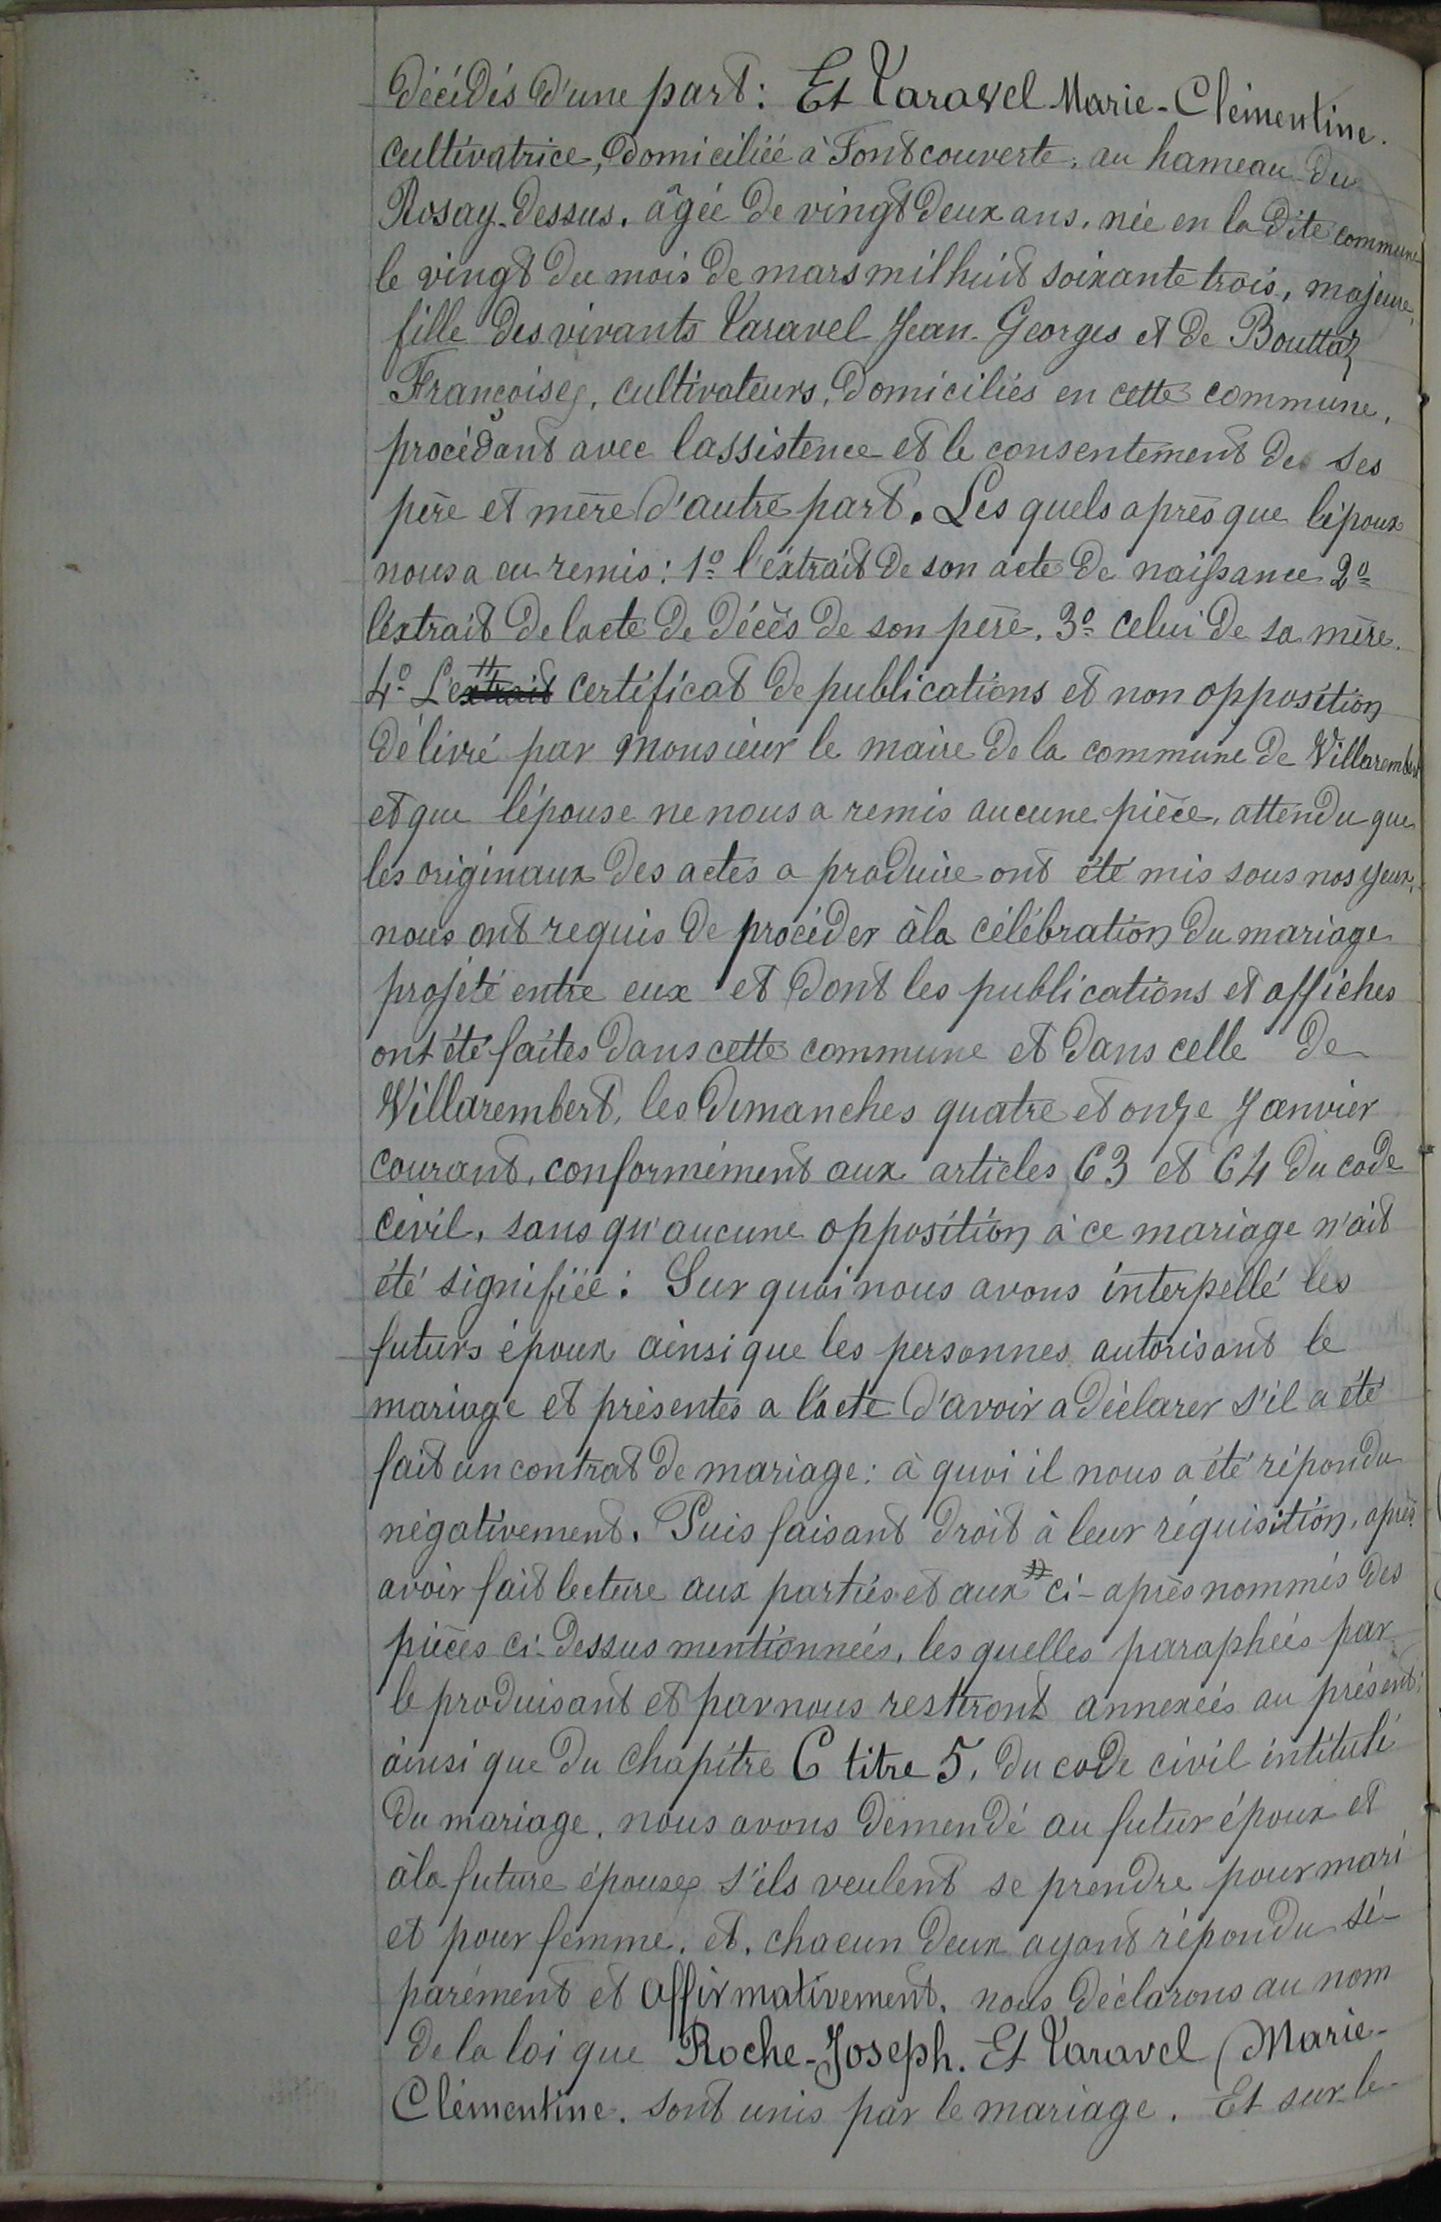 décédés d'une part : Et Varavel Marie-Clémentine.
cultivatrice, domiciliée à Fontcouverte, au hameau du
Rosay-dessus, âgée de vingt deux ans, née en la dite commune
le vingt du mois de mars mil huit soixante trois, majeure,
fille des vivants Varavel Jean-Georges et de Bouttaz
Françoise, cultivateurs, domiciliés en cette commune,
procédant avec lassistence et le consentement de ses
père et mère d'autre part. Les quels après que lépoux
nous a eu remis : 1º l'extrait de son acte de naissance 2º
léxtrait de lacte de décès de son père, 3º celui de sa mère.
4º Le extrait certificat de publications et non opposition
délivré par monsieur le maire de la commune de Villarembert
et que lépouse ne nous a remis aucune pièce, attendu que
les originaux des actes a produire ont été mis sous nos yeux,
nous ont requis de procéder àla célébration du mariage
projeté entre eux et dont les publications et affiches
ont été faites dans cette commune et dans celle de
Villarembert, les dimanches quatre et onze Janvier
courant, conformément aux articles 63 et 64 du code
civil, sans qu'aucune opposition à ce mariage n'ait
été signifiée : Sur quoi nous avons interpellé les
futurs époux ainsi que les personnes autorisant le
mariage et présentes a lácte d'avoir a déclarer s'il a été
fait un contrat de mariage : à quoi il nous a été répondu
négativement. Puis faisant droit à leur réquisition, après
avoir fait lecture aux parties et aux ci-après nommés des
pièces ci-dessus mentionnées, les quelles paraphées par
le produisant et par nous resteront annexées au présent;
ainsi que du chapitre 6 titre 5, du code civil intitulé
du mariage, nous avons demendé au futur époux et
àla future épouse s'ils veulent se prendre pour mari
et pour femme, et, chacun deux ayant répondu sé-
parément et affirmativement, nous déclarons au nom
de la loi que Roche-Joseph. Et Varavel Marie-
Clémentine. sont unis par le mariage. Et sur-le-